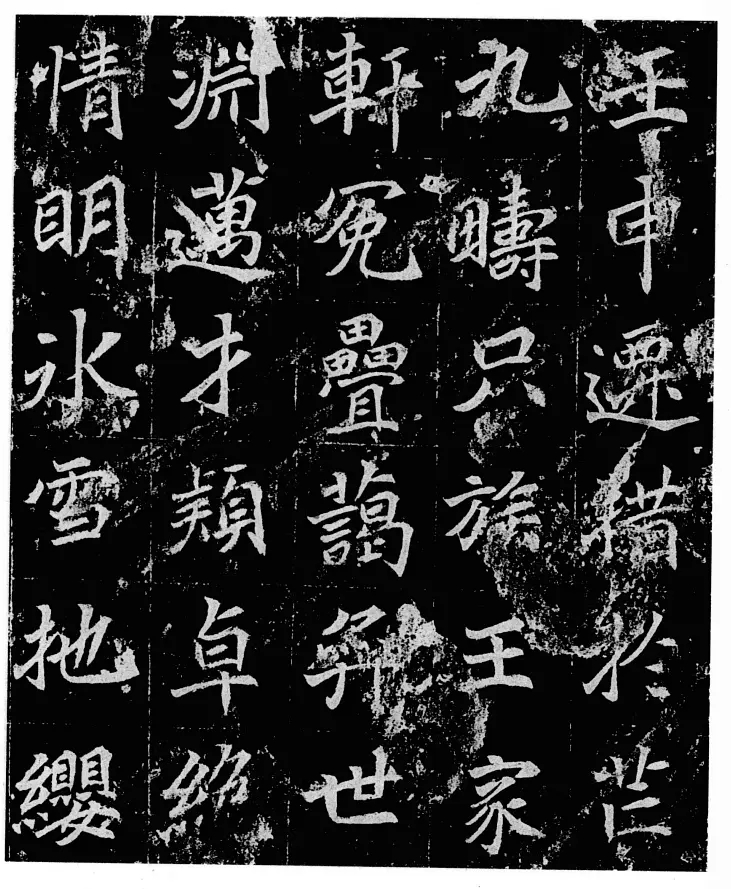 壬申遷措於芒
九疇只族王家
軒冕疊藹弈世
淵邁才穎卓絕
情明氷雪地纓